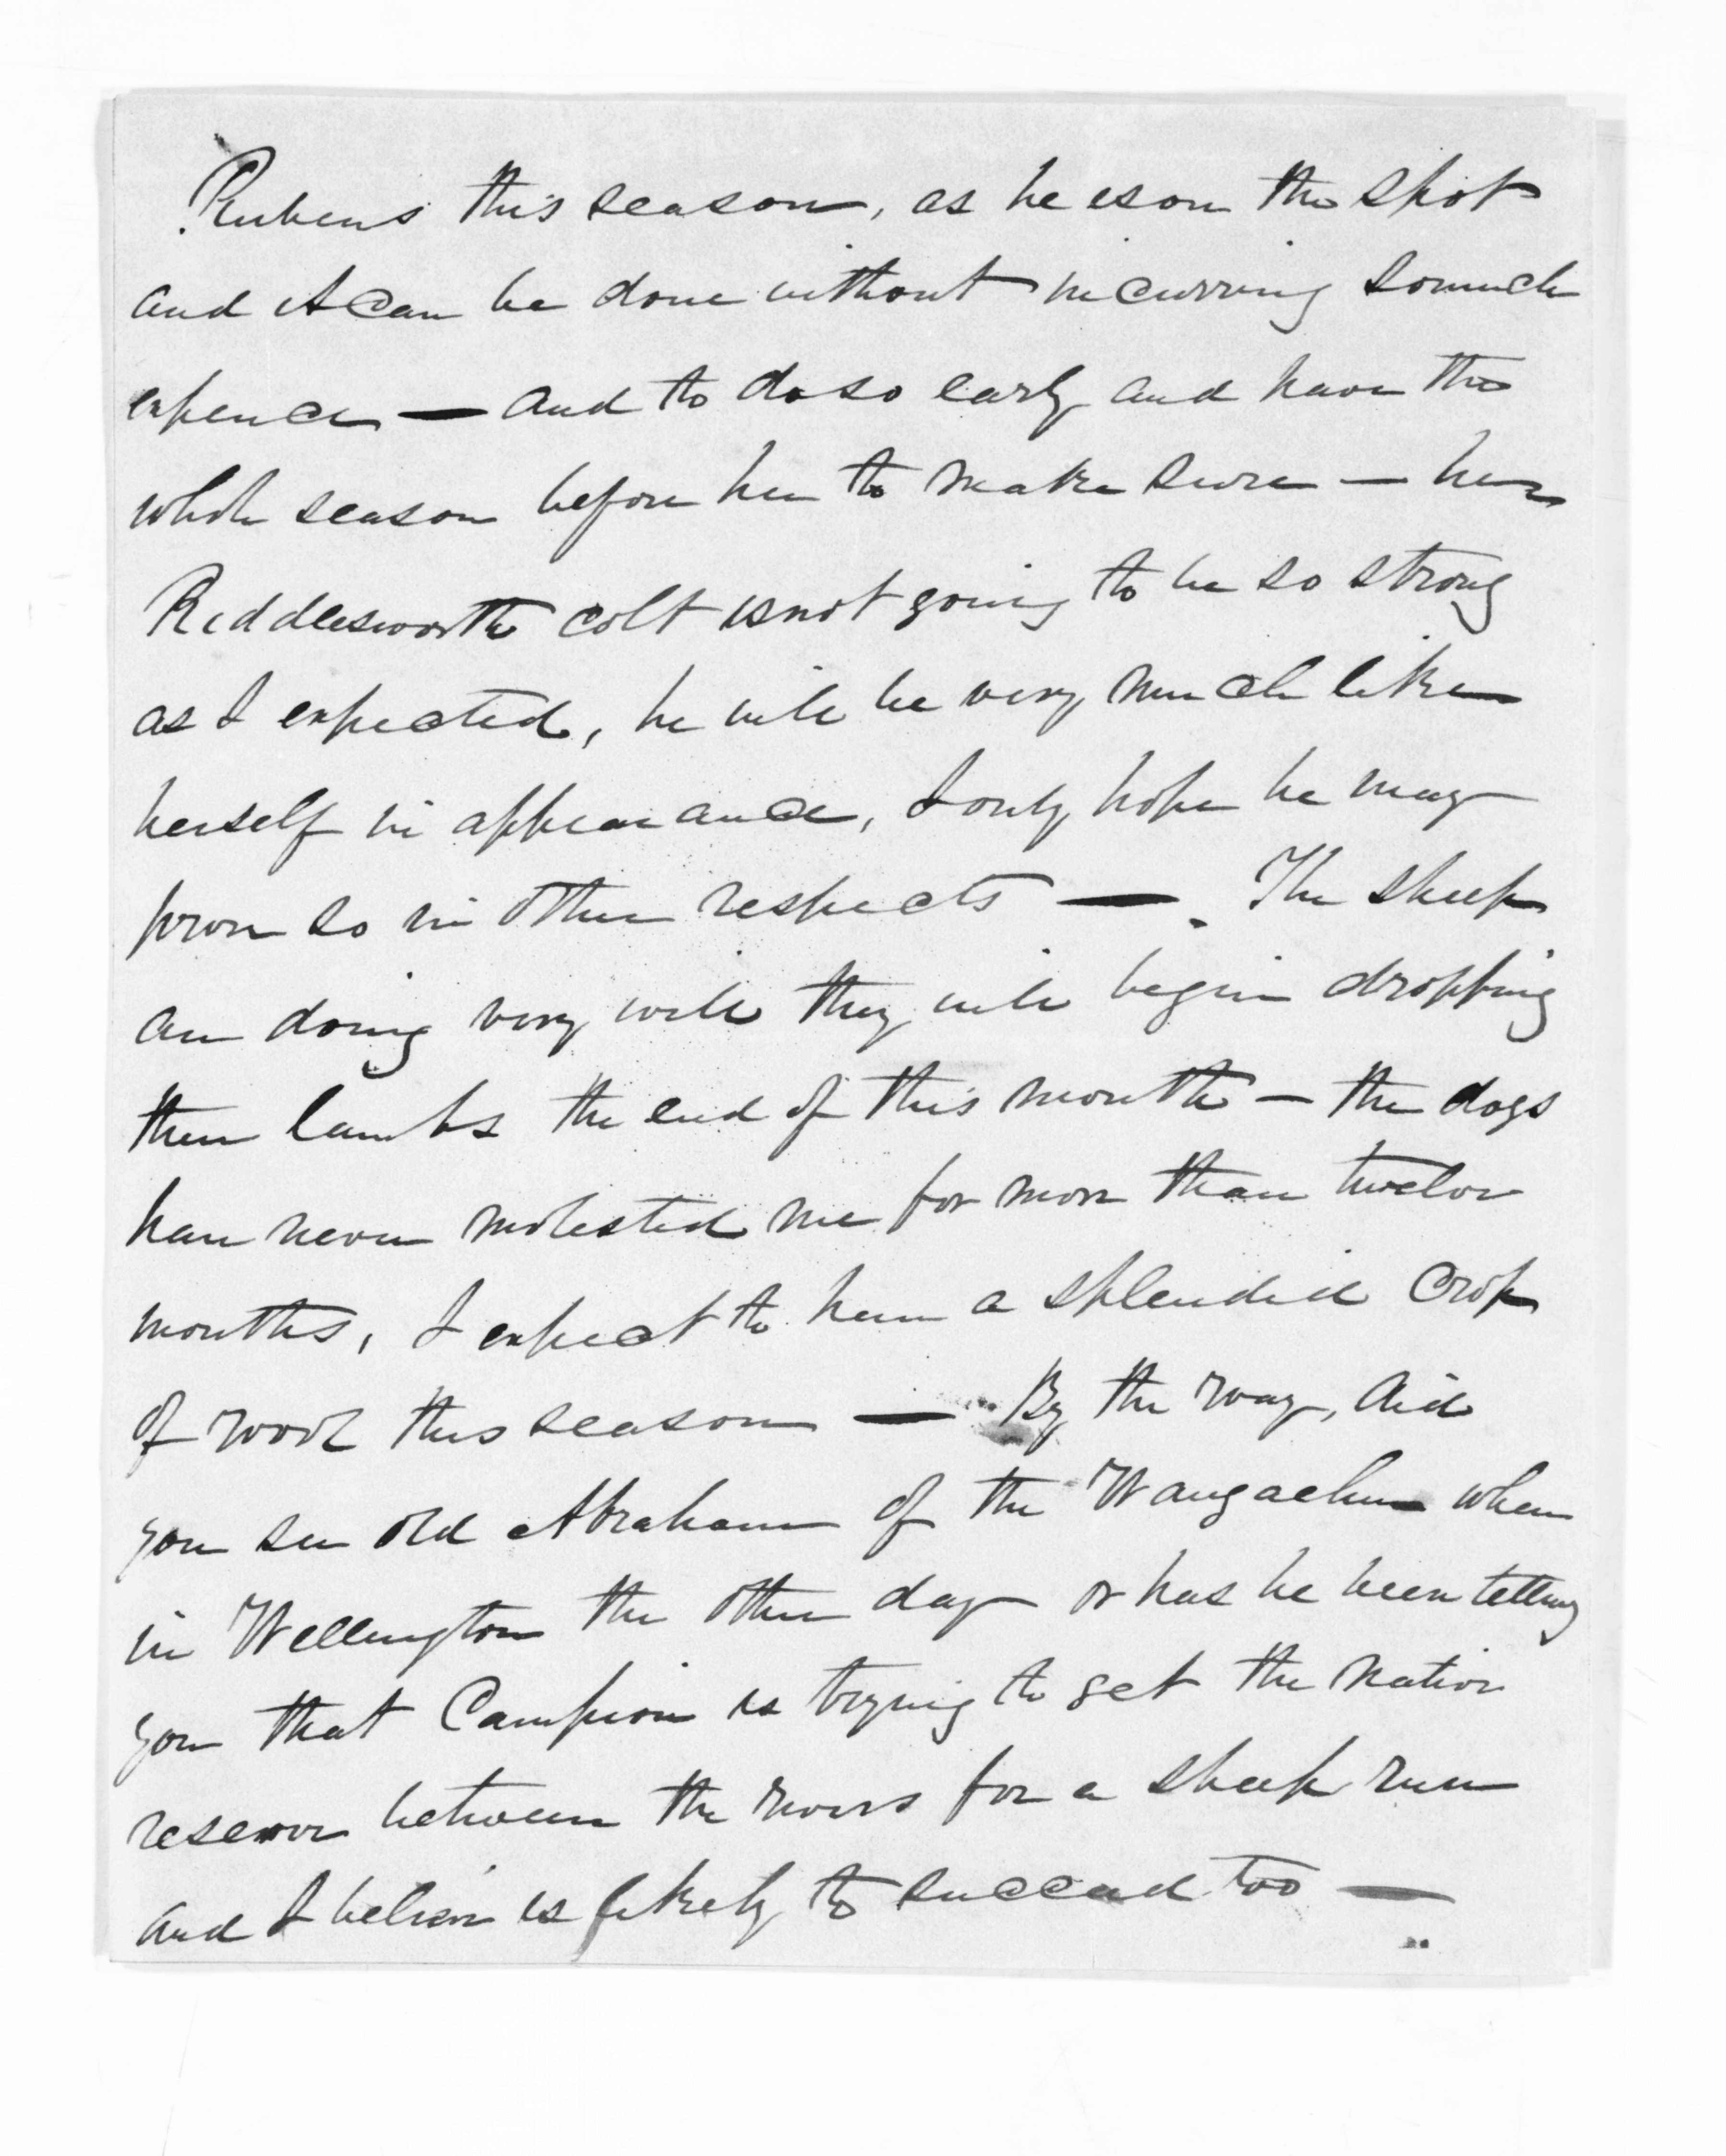 Rubens this season, as he is on the spot
and it can be done without incurring so much
expence — and to do so early and have the
whole season before her to make sure — her
Riddlesworth colt is not going to be so strong
as I expected, he will be very much like
herself in appearance, I only hope he may
prove so in other respects — The sheep
are doing very well they will begin dropping
their lambs the end of this month — the dogs
have never molested me for more than twelve
months, I expect to have a splendid crop
of wool this season — By the way, did
you see old Abraham of the Wangaehu when
in Wellington the other day or has he been telling
you that Campion is trying to get the native
reserve between the rivers for a sheep run
and I believe is likely to succeed too —